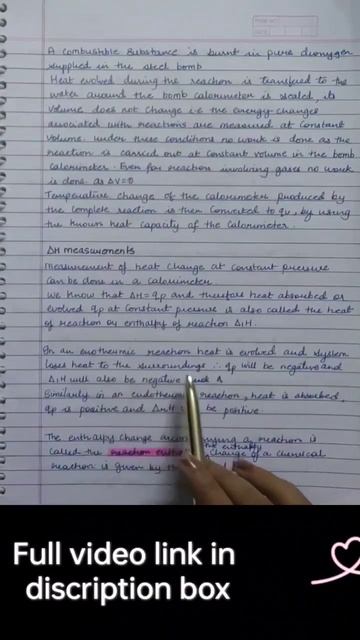 A combustible substance is burnt in pure dioxygen
supplied in the steel bomb
Heat evolved during the reaction is transfered to the
water around the bomb calorimeter is sealed, its
volume does not change i.e the energy changes
associated with reactions are measured at constant
volume. under these conditions no work is done as the
reaction is carried out at constant volume in the bomb
calorimeter. Even for reaction involving gases no work
is done as ΔV=0
Temperature change of the calorimeter produced by
the complete reaction is then converted to qv, by using
the known heat capacity of the calorimeter.
ΔH measurements
measurement of heat change at constant pressure
can be done in a calorimeter.
We know that ΔH = qp and therefore heat absorbed or
evolved qp at constant pressure is also called the heat
of reaction or enthalpy of reaction ΔrH.
In an exothermic reaction heat is evolved and system
loses heat to the surroundings ∴ qp will be negative and
ΔrH will also be negative
Similarly in an endothermic reaction, heat is absorbed
qp is positive and ΔrH be positive
The enthalpy change a reaction is
the enthalpy
called the reaction change of a chemical
reaction is given by the
Full video link in
discription box